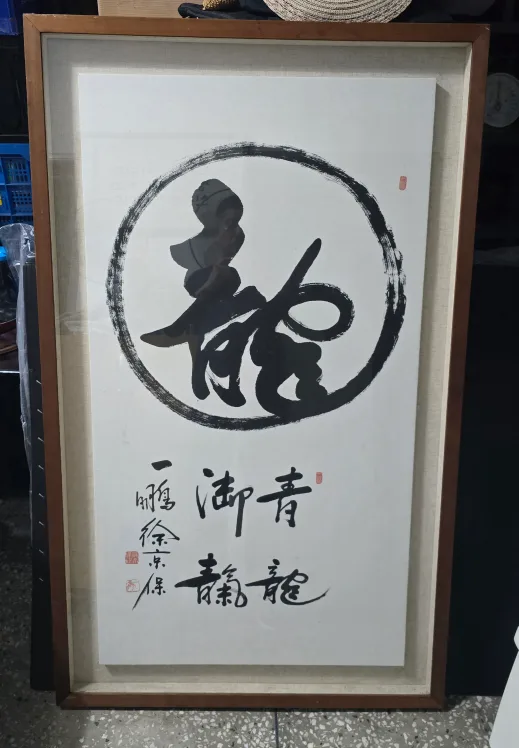 龍
青龍
御靝
一鵬徐京保